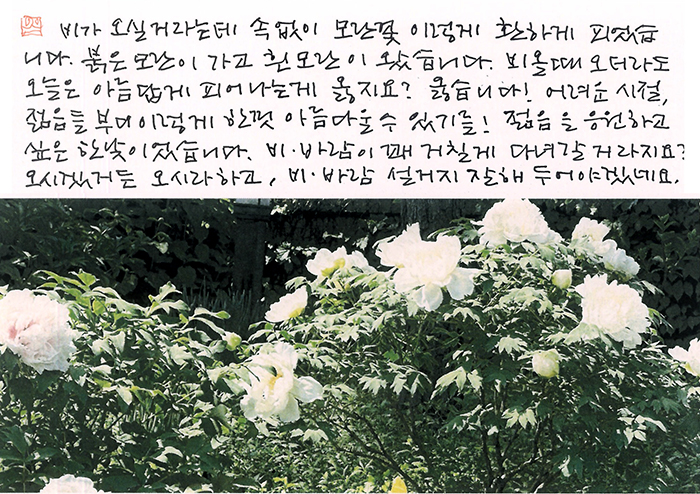 비가 오실거라는데 속없이 모란꽃 이렇게 환하게 피었습
니다. 붉은 모란이 가고 흰 모란이 왔습니다. 비올때 오더라도
오늘은 아름답게 피어나는게 옳지요? 옳습니다! 어려운 시절,
젊음들 부디 이렇게 한껏 아름다울 수 있기를! 젊음을 응원하고
싶은 한낮이었습니다. 비·바람이 꽤 거칠게 다녀갈 거라지요?
오시겠거든 오시라하고, 비·바람 설거지 잘해 두어야겠네요.